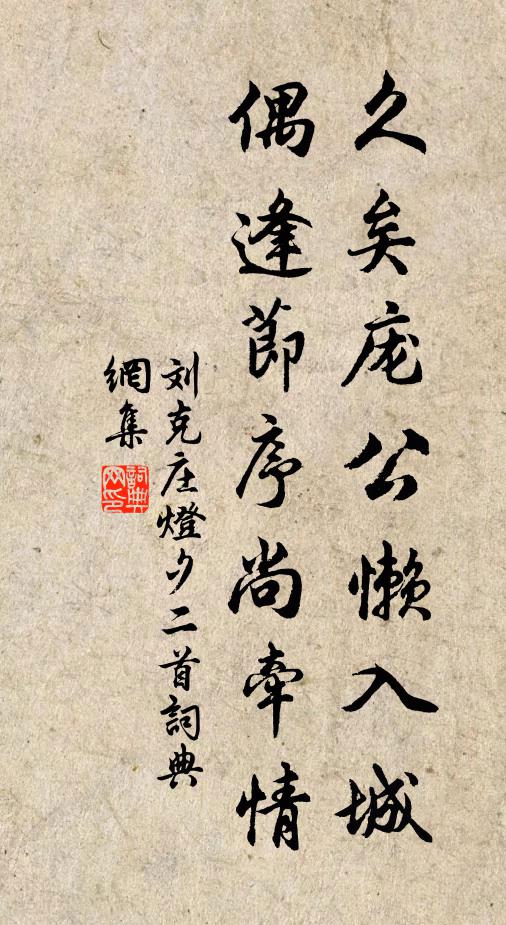 久矣庞公懒入城
偶逢節序尚牽情
刘克庄燈夕二首詞典
網集
詞典
网印